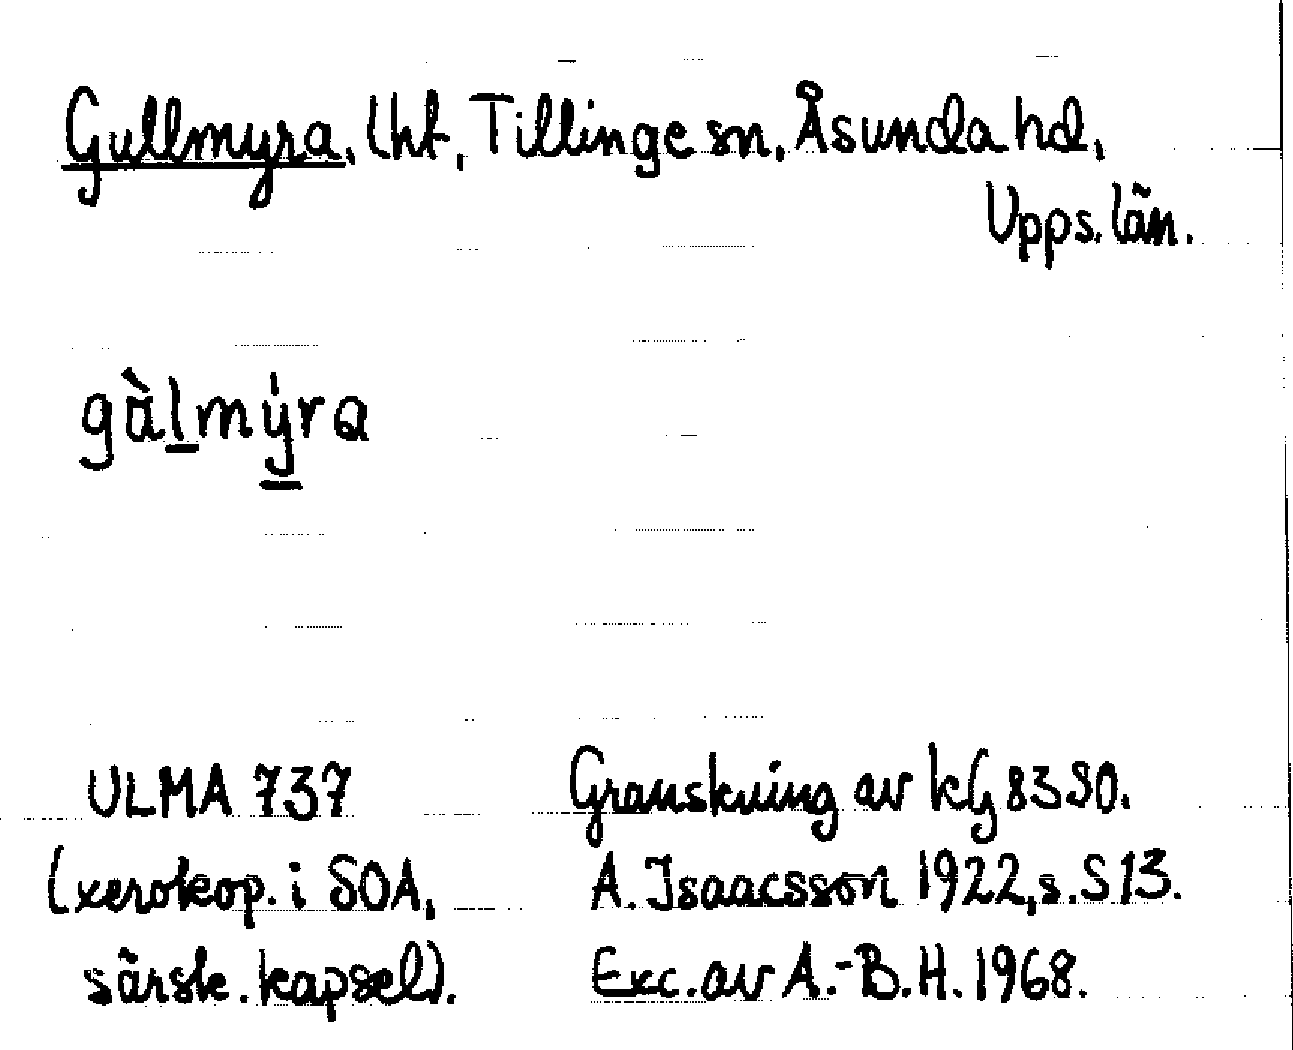 Gullmyra, lht, Tillinge sn, Åsunda hd,
Upps. län.
gàlmýra
ULMA 737
(xerokop. i SOA,
särsk. kapsel).
Granskning av kG 8390.
A. Isaacsson 1922, s. S 13.
Exc. av A.-B. H. 1968.